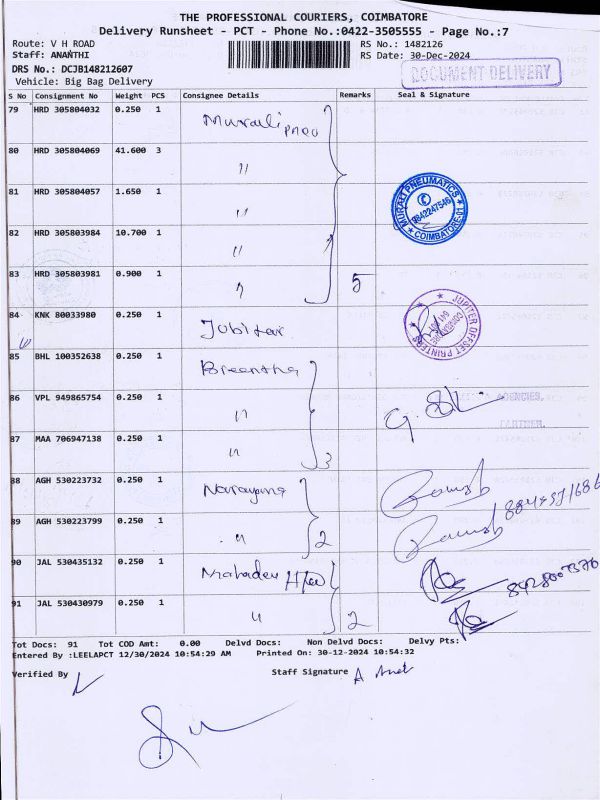 THE PROFESSIONAL COURIERS, COIMBATORE
Delivery Runsheet - PCT - Phone No.:0422-3505555 - Page No.:7
Route: V H ROAD
RS No.: 1482126
Staff: ANANTHI
RS Date: 30-Dec-2024
DRS No.: DCJB148212607
DOCUMENT DELIVERY
Vehicle: Big Bag Delivery
S No Consignment No Weight PCS Consignee Details Remarks Seal & Signature
79 HRD 305804032 0.250 1 Murali pneu
80 HRD 305804069 41.600 3 "
81 HRD 305804057 1.650 1 "
MURALI PNEUMATICS
9842247546
★ COIMBATORE-01 ★
82 HRD 305803984 10.700 1 "
83 HRD 305803981 0.900 1 " 5
84 KNK 80033980 0.250 1 Jubitar
JUPITER OFFSET PRINTERS
641 001
85 BHL 100352638 0.250 1 Breentha
86 VPL 949865754 0.250 1 "
AGENCIES,
PARTNER.
87 MAA 706947138 0.250 1 " 3
88 AGH 530223732 0.250 1 Narayana
89 AGH 530223799 0.250 1 " 2
90 JAL 530435132 0.250 1 Mahadev
91 JAL 530430979 0.250 1 " 2
Tot Docs: 91 Tot COD Amt: 0.00 Delvd Docs: Non Delvd Docs: Delvy Pts:
Entered By :LEELAPCT 12/30/2024 10:54:29 AM Printed On: 30-12-2024 10:54:32
Verified By
Staff Signature